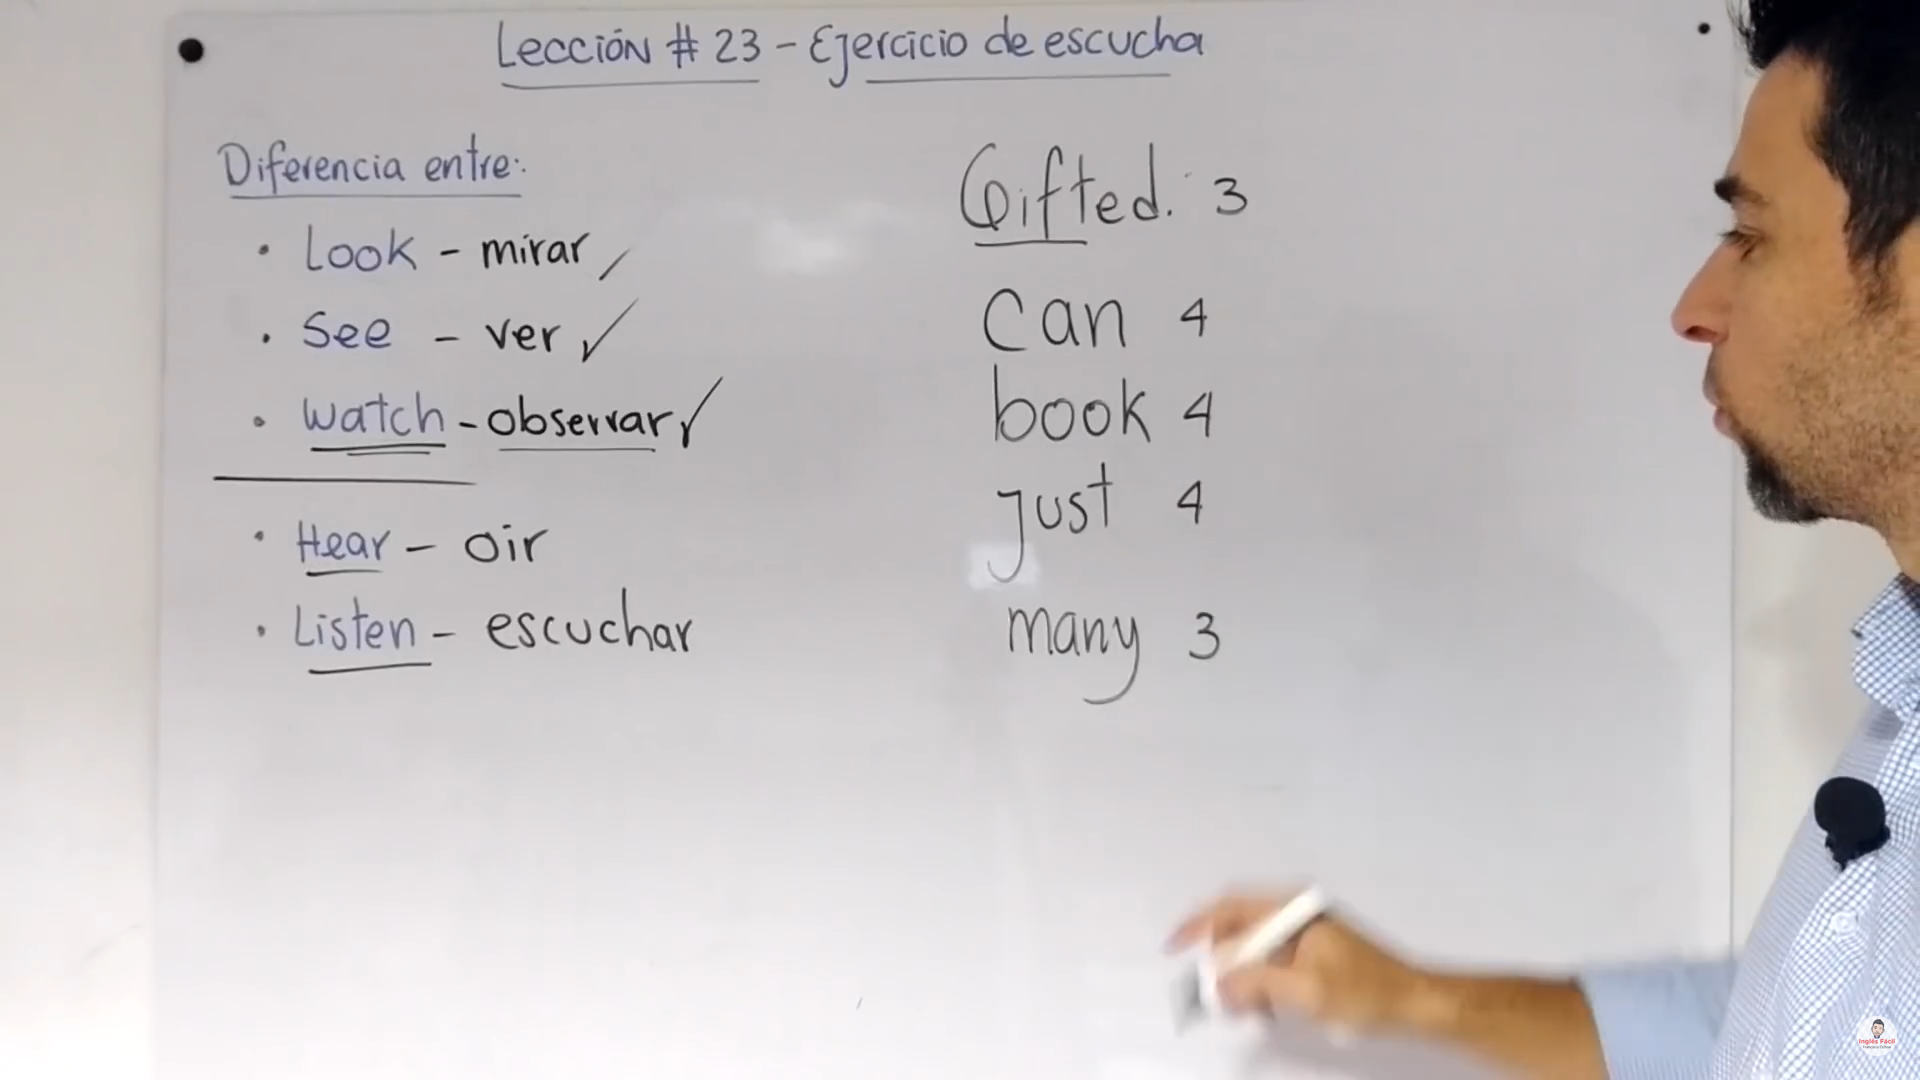 Lección # 23 - Ejercicio de escucha
Diferencia entre:
• Look - mirar
• See - ver ✓
• Watch - observar ✓
• Hear - oir
• Listen - escuchar
Gifted. 3
Can 4
book 4
just 4
many 3
Inglés Fácil